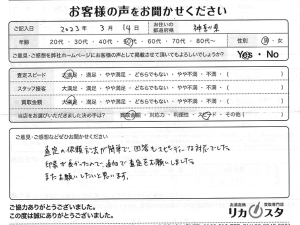 お客様の声をお聞かせください
ご記入日 2023 年 3 月 14 日 お住いの都道府県 神奈川県
年齢 20代・30代・40代・50代・60代・70代・80代〜 性別 男・女
ご意見・ご感想を弊社ホームページにお客様の声として掲載させて頂いてもよろしいでしょうか? Yes・No
査定スピード 大満足・満足・やや満足・どちらでもない・やや不満・不満・( )
スタッフ接客 大満足・満足・やや満足・どちらでもない・やや不満・不満・( )
買取金額 大満足・満足・やや満足・どちらでもない・やや不満・不満・( )
当店をお選びいただきました決め手は? 買取金額・対応力・利便性・スピード・その他( )
ご意見・ご感想などぜひお聞かせください
査定の依頼方法が簡単で、回答もスピーディな対応でした
印象が良かったので、追加で査定をお願いしました
またお願いしたいと思います。
ご協力ありがとうございました。
この度は誠にありがとうございました。
お酒高価買取専門店
リカスタ